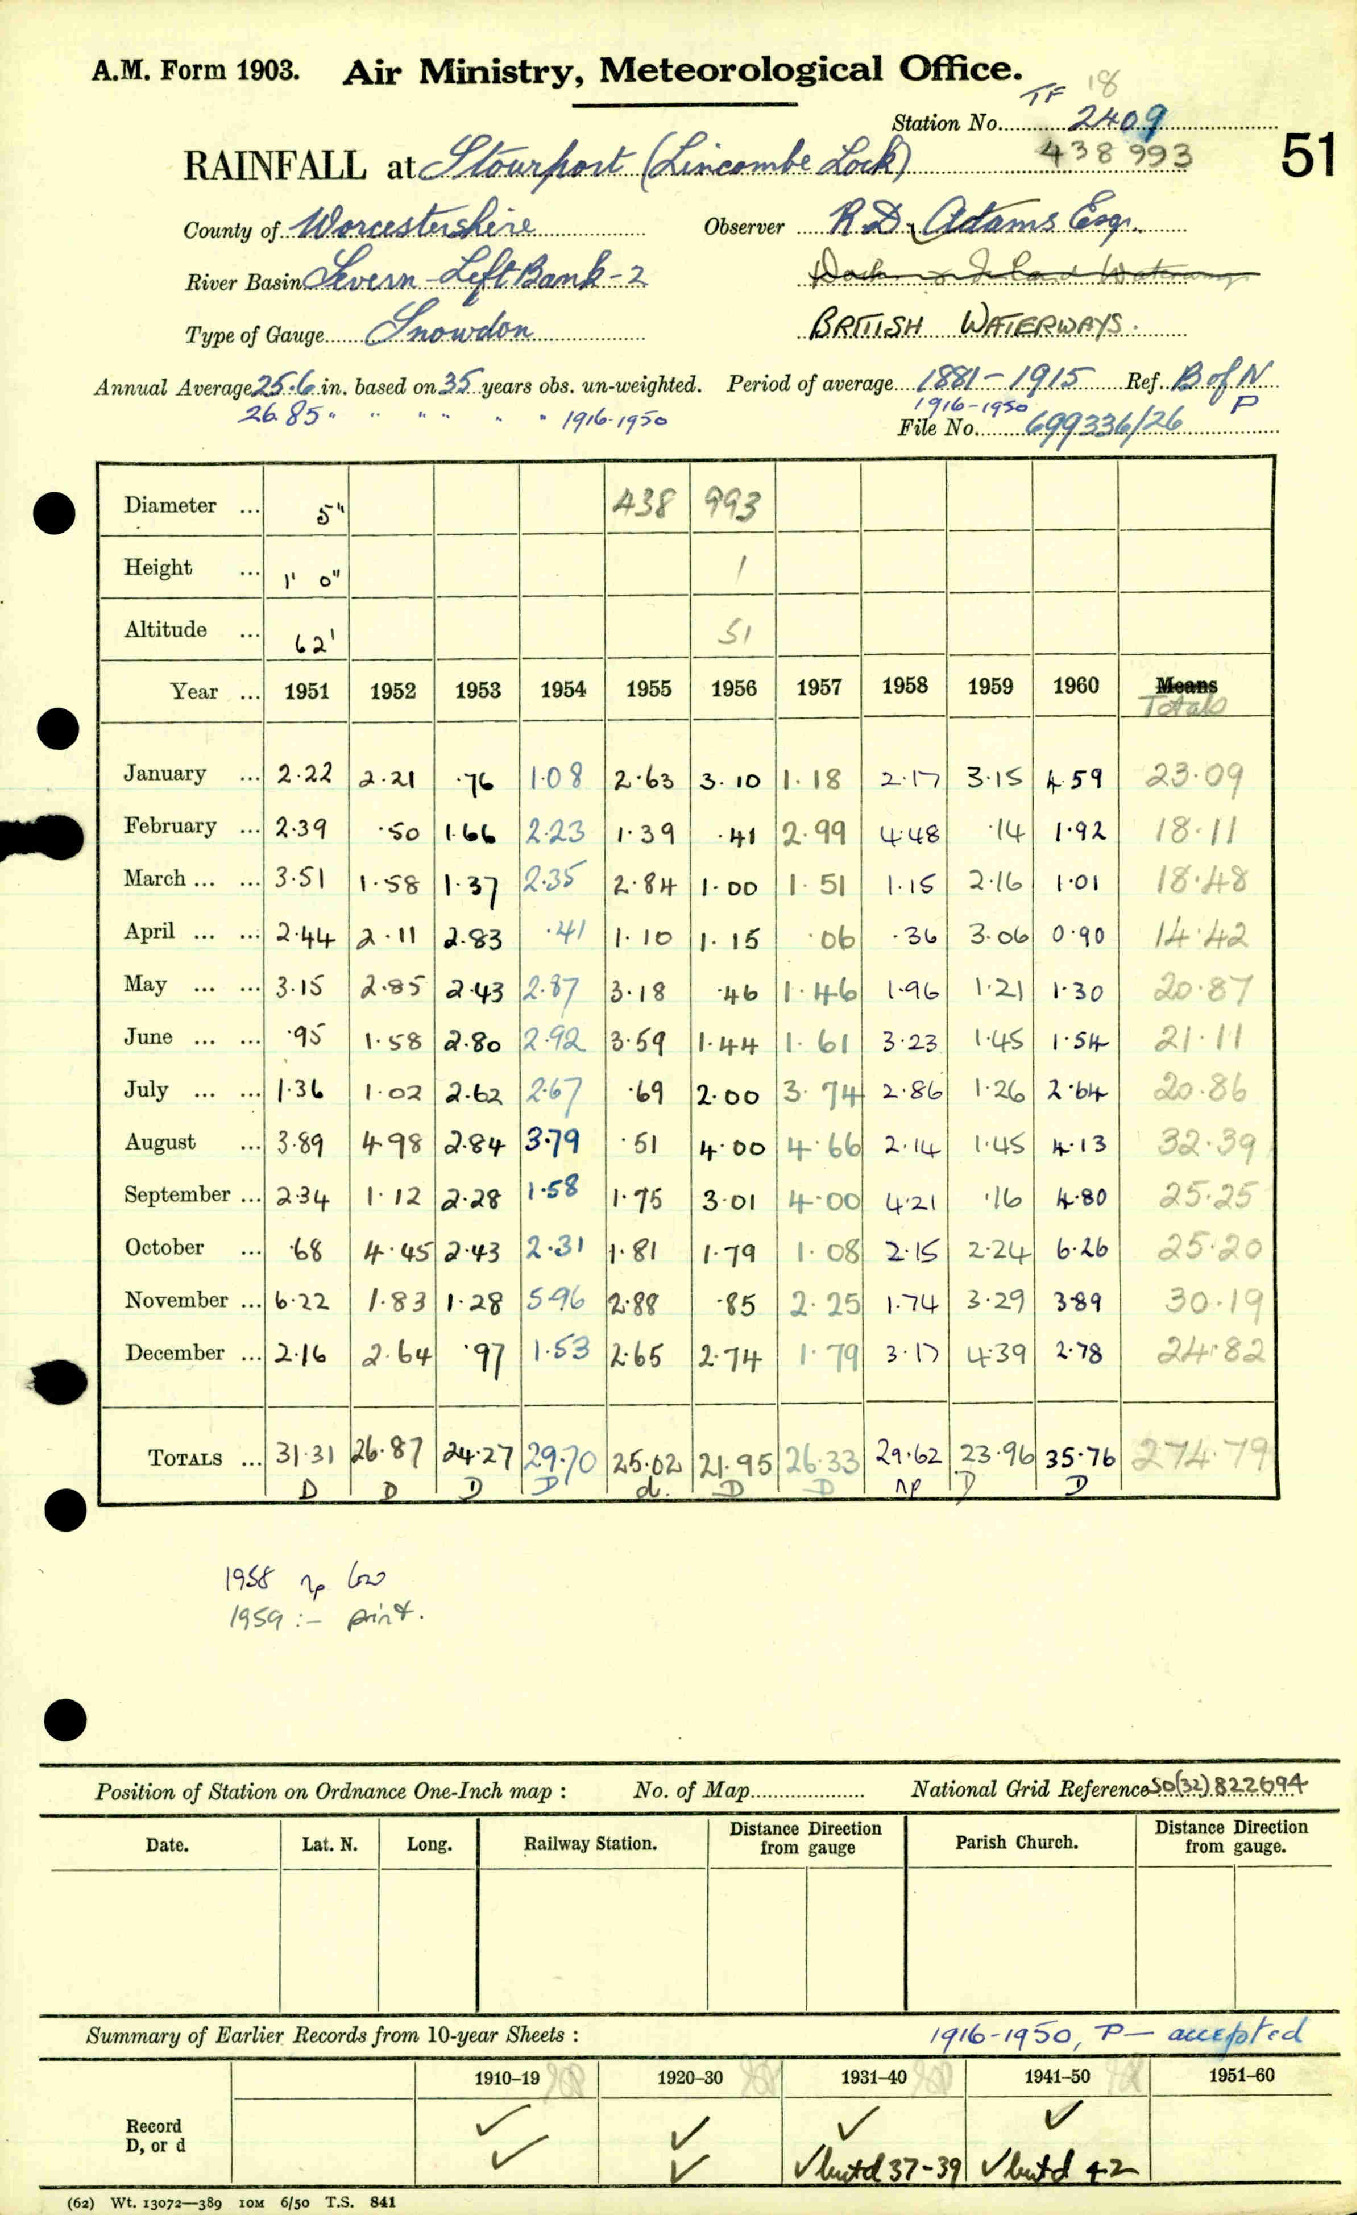 A.M. Form 1903. Air Ministry, Meteorological Office.
TF 18
Station No. 2409
RAINFALL at Stourport (Lincombe Lock) 438993 51
County of Worcestershire Observer R.D. Adams Esq.
River Basin Severn - Left Bank - 2
Type of Gauge Snowdon BRITISH WATERWAYS.
Annual Average 25.6 in. based on 35 years obs. un-weighted. Period of average 1881-1915 Ref. B of N
26.85 " " " " " " 1916-1950 1916-1950 P
File No. 699336/26
Diameter ... 5" 438 993
Height ... 1' 0" 1
Altitude ... 62' 51
Year ... 1951 1952 1953 1954 1955 1956 1957 1958 1959 1960 Means
Totals
January ... 2.22 2.21 .76 1.08 2.63 3.10 1.18 2.17 3.15 4.59 23.09
February ... 2.39 .50 1.66 2.23 1.39 .41 2.99 4.48 .14 1.92 18.11
March ... ... 3.51 1.58 1.37 2.35 2.84 1.00 1.51 1.15 2.16 1.01 18.48
April ... ... 2.44 2.11 2.83 .41 1.10 1.15 .06 .36 3.06 0.90 14.42
May ... ... 3.15 2.85 2.43 2.87 3.18 .46 1.46 1.96 1.21 1.30 20.87
June ... ... .95 1.58 2.80 2.92 3.59 1.44 1.61 3.23 1.45 1.54 21.11
July ... ... 1.36 1.02 2.62 2.67 .69 2.00 3.74 2.86 1.26 2.64 20.86
August ... 3.89 4.98 2.84 3.79 .51 4.00 4.66 2.14 1.45 4.13 32.39
September ... 2.34 1.12 2.28 1.58 1.75 3.01 4.00 4.21 .16 4.80 25.25
October ... .68 4.45 2.43 2.31 1.81 1.79 1.08 2.15 2.24 6.26 25.20
November ... 6.22 1.83 1.28 5.96 2.88 .85 2.25 1.74 3.29 3.89 30.19
December ... 2.16 2.64 .97 1.53 2.65 2.74 1.79 3.17 4.39 2.78 24.82
TOTALS ... 31.31 26.87 24.27 29.70 25.02 21.95 26.33 29.62 23.96 35.76 274.79
D D D D d. D D np D D
1958 np low
1959 :- print.
Position of Station on Ordnance One-Inch map : No. of Map National Grid Reference SO(32)822694
Date. Lat. N. Long. Railway Station. Distance from gauge Direction Parish Church. Distance from gauge. Direction
Summary of Earlier Records from 10-year Sheets : 1916-1950, P - accepted
1910–19 1920–30 1931–40 1941–50 1951–60
Record ✓ ✓ ✓ ✓
D, or d ✓ ✓ ✓ but d 37-39 ✓ but d 42
(62) Wt. 13072—389 10M 6/50 T.S. 841